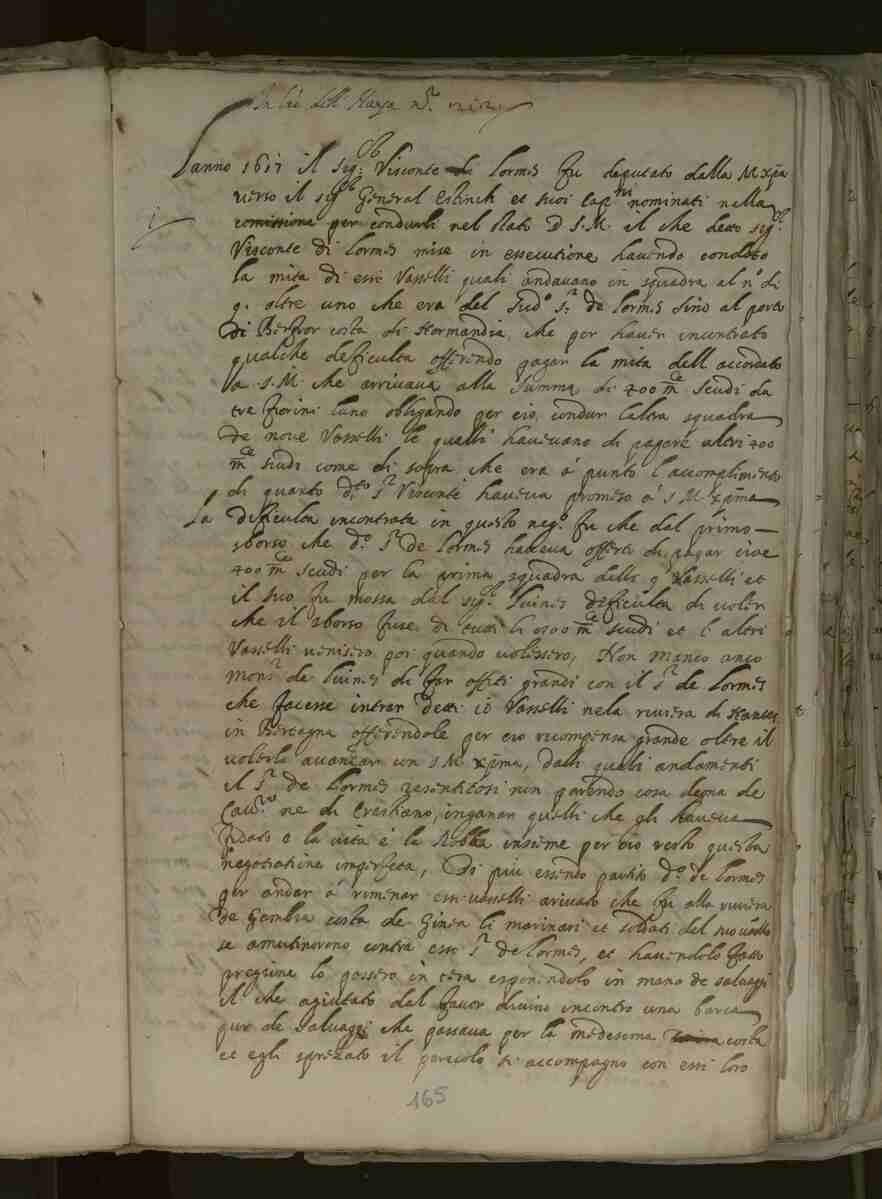 In lre dell'
Lanno 1617 il sigr Visconte de Lormes fu deputato dalla M. xpma
verso il sigr General Estinch et suoi Capni nominati nella
comissione per condurli nel stato D S.M. il che detto sigr
Visconte di Lormes mise in essecutione havendo condotto
la mita di essi Vasselli quali andavano in squadra al no di
9. oltre uno che era del sudo sr de Lormes sino al porto
di costa di Normandia, che per haver incontrato
qualche deficulta offerendo pagar la mita dell accordato
a S.M. che arrivava alla summa di 400 m scudi da
tre fiorini luno obligando per cio condur laltra squadra
de nove Vasselli le quelli havevano di pagare altri 400
m scudi come di sopra che era á punto l'accomplimento
di quanto dto sr Visconte haveva promesso á S M. xpma
La dificulta incontrata in questo nego fu che dal primo
sborso che do sr de Lormes haveva offerti di pagar cioe
400 m scudi per la prima squadra delli 9 Vasselli et
il suo fu mossa dal sigr Luines deficulta di voler
che il sborso fuse di tutti li 800 m scudi et l'altri
Vasselli venisero poi quando volessero, Non manco anco
Monsr de Luines di far offerti grandi con il sr de Lormes
che facesse intrar detti 10 Vasselli nela riviera di Nantes
in Bertagna offerendole per cio ricompensa grande oltre il
volerlo avanzar con S.M. xpma, dalli quali andamenti
il sr de Lormes resentitosi non parendo cosa degna de
Cavre ne di Crestiano, inganar quelli che gli haveva
fidato e la vita é la Robba insieme per cio resto questa
negotiatine imperfeta, Di piu essendo partito do de Lormes
per andar á rimenar essi vasselli arivato che fu alla riviera
de Gambra costa de Ginea li marinari et soldati del suo vasello
se amutinorono contra esso sr de Lormes, et havendolo fatto
pregione lo possero in tera esponendolo in mano de salvaggi
il che agiutato dal favor divino incontro una barca
pur de salvaggi che passava per la medesema costa
et egli sprezato il pericolo si accompagno con essi loro
165